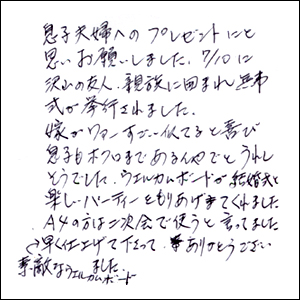 息子夫婦へのプレゼントにと
思いお願いしました。7/10に
沢山の友人、親族に囲まれ無事
式が挙行されました。
嫁がワァーすごい似てると喜び
息子もホクロまであるんやでとうれし
そうでした。ウェルカムボードが結婚式と
楽しいパーティーをもりあげてくれました
A4の方は二次会で使うと言ってました
早く仕上げて下さって ありがとうござい
ました。
素敵なウェルカムボード